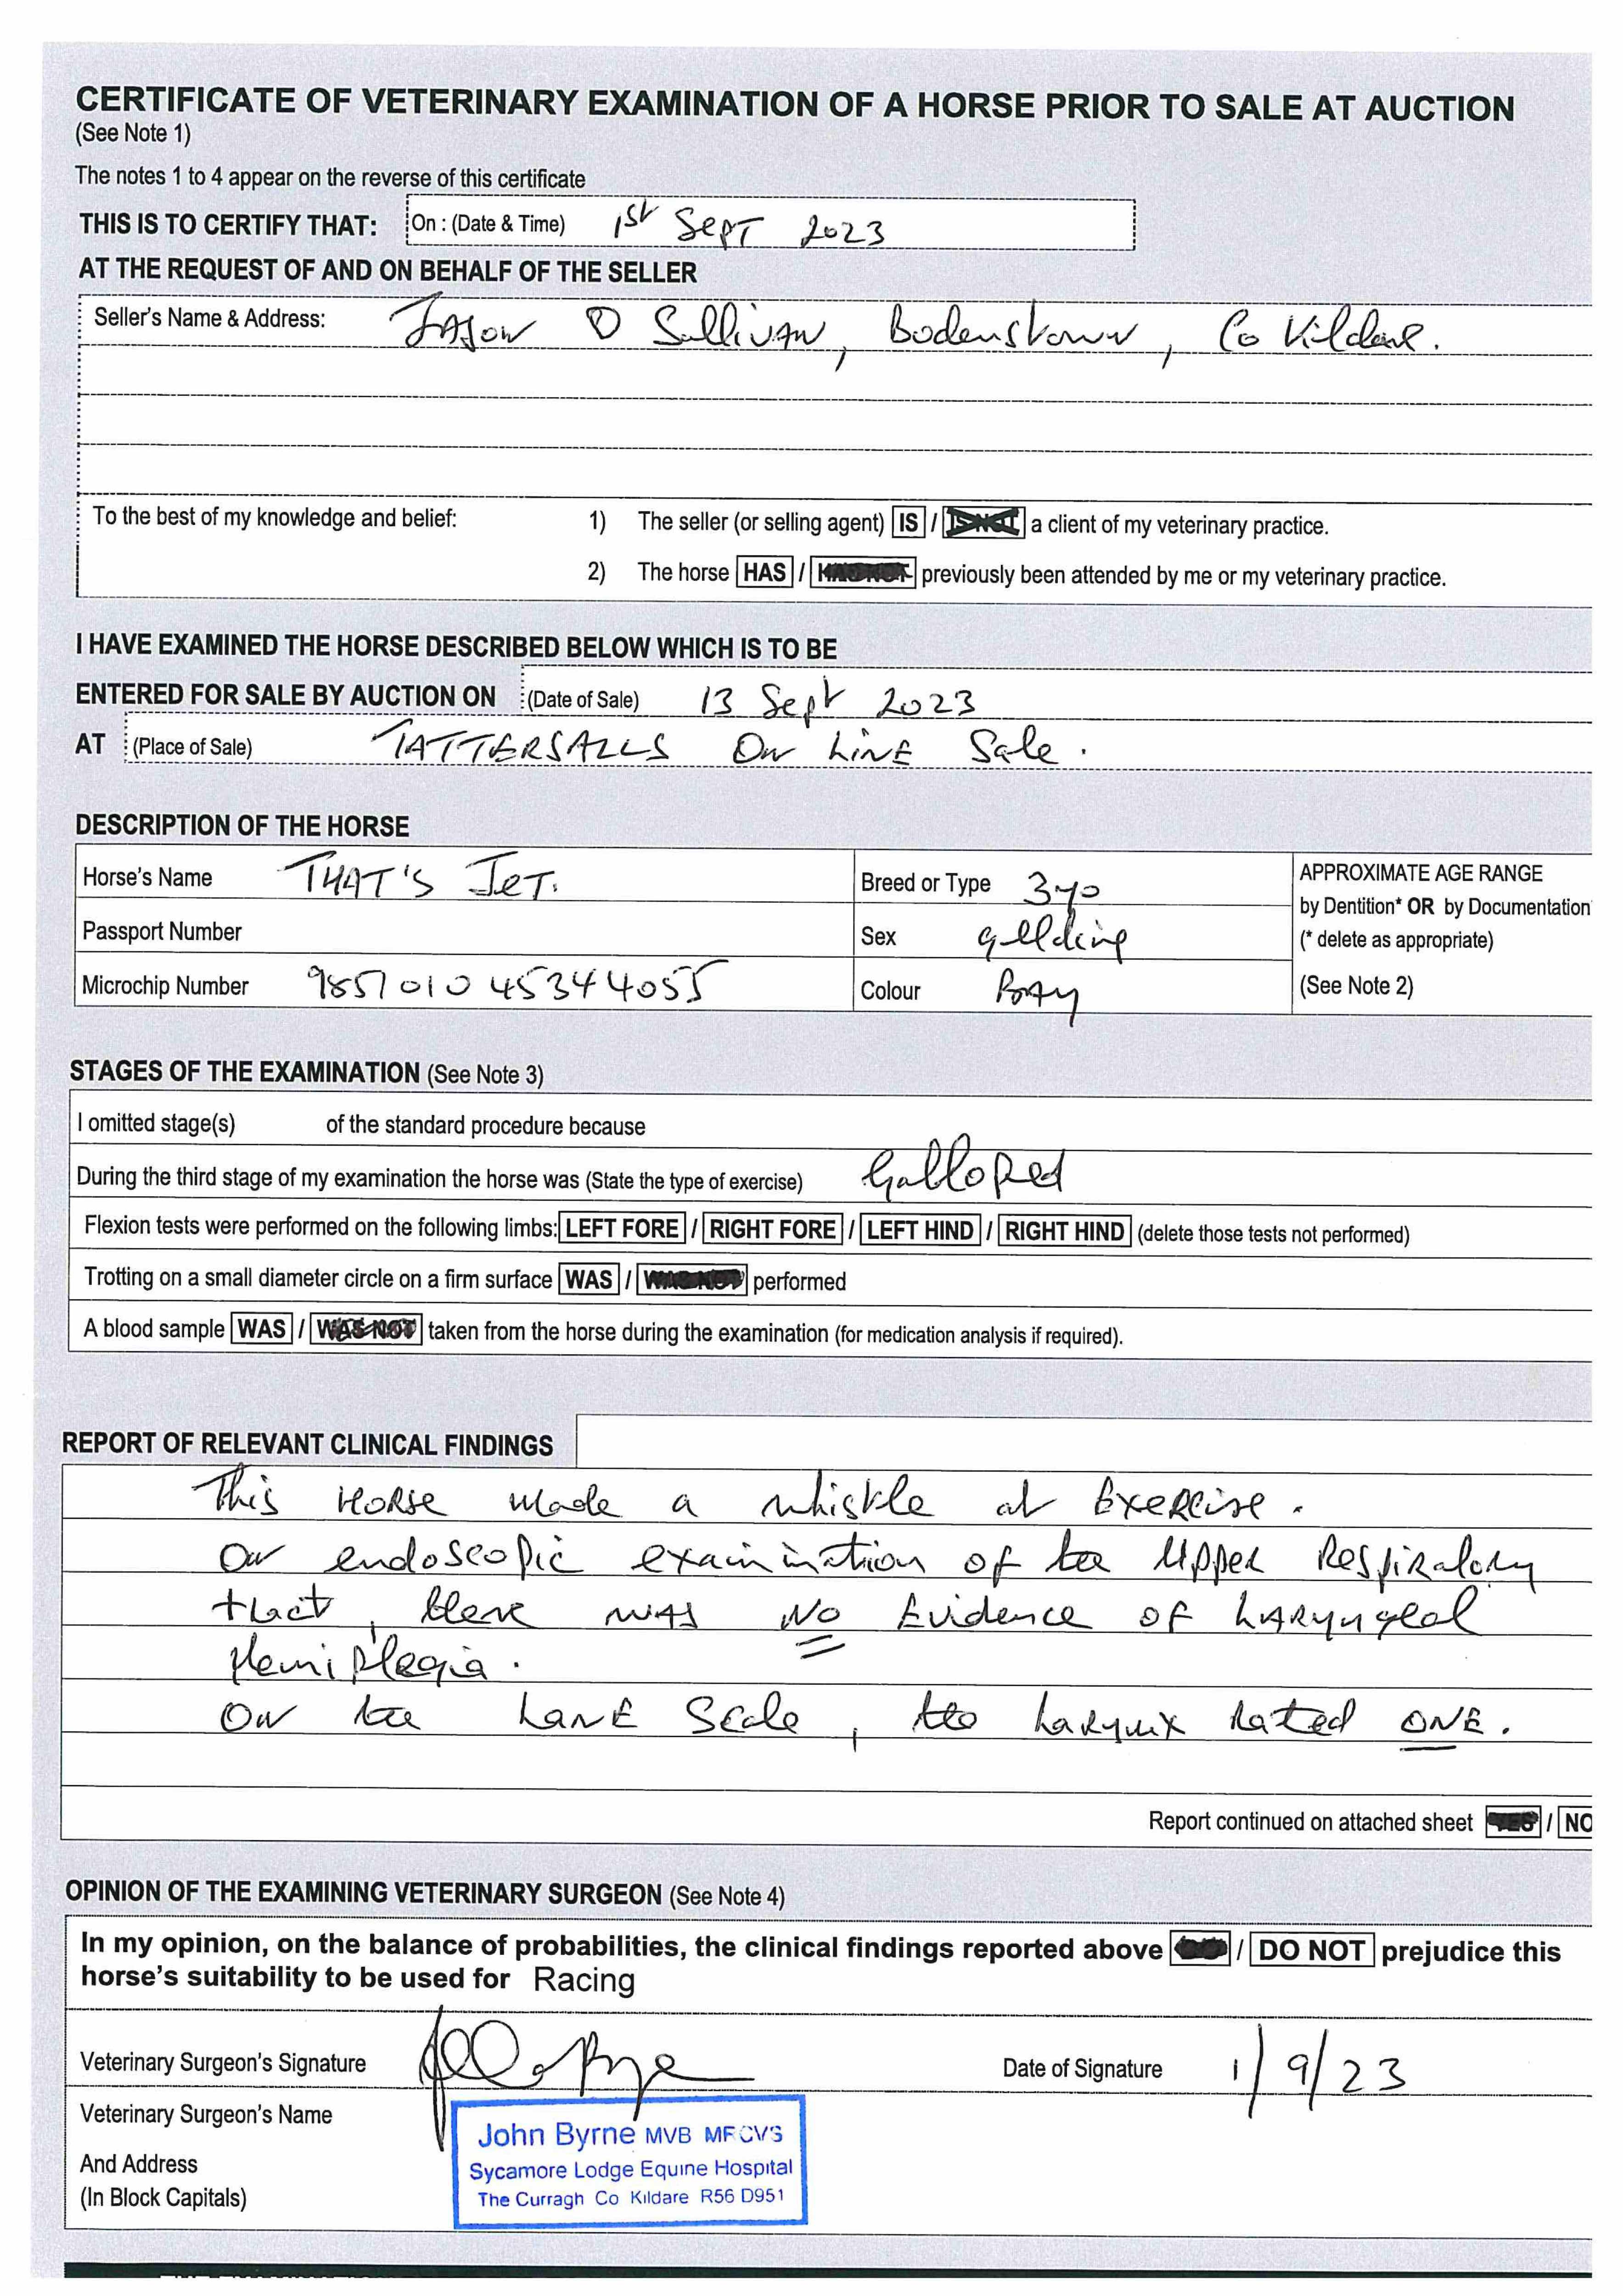 CERTIFICATE OF VETERINARY EXAMINATION OF A HORSE PRIOR TO SALE AT AUCTION
(See Note 1)
The notes 1 to 4 appear on the reverse of this certificate
THIS IS TO CERTIFY THAT: On : (Date & Time) 1st Sept 2023
AT THE REQUEST OF AND ON BEHALF OF THE SELLER
Seller's Name & Address: JASON O Sullivan, Bodenstown, Co Kildare.
To the best of my knowledge and belief: 1) The seller (or selling agent) IS / IS NOT a client of my veterinary practice.
2) The horse HAS / HAS NOT previously been attended by me or my veterinary practice.
I HAVE EXAMINED THE HORSE DESCRIBED BELOW WHICH IS TO BE
ENTERED FOR SALE BY AUCTION ON (Date of Sale) 13 Sept 2023
AT (Place of Sale) TATTERSALLS On LINE Sale.
DESCRIPTION OF THE HORSE
Horse's Name THAT'S JET. Breed or Type 3yo APPROXIMATE AGE RANGE
by Dentition* OR by Documentation
Passport Number Sex gelding (* delete as appropriate)
Microchip Number 985101045344055 Colour BAY (See Note 2)
STAGES OF THE EXAMINATION (See Note 3)
I omitted stage(s) of the standard procedure because
During the third stage of my examination the horse was (State the type of exercise) Galloped
Flexion tests were performed on the following limbs: LEFT FORE / RIGHT FORE / LEFT HIND / RIGHT HIND (delete those tests not performed)
Trotting on a small diameter circle on a firm surface WAS / WAS NOT performed
A blood sample WAS / WAS NOT taken from the horse during the examination (for medication analysis if required).
REPORT OF RELEVANT CLINICAL FINDINGS
This Horse made a whistle at Exercise.
On endoscopic examination of the Upper Respiratory
tract, there was No Evidence of Laryngeal
Hemiplegia.
On the Lane Scale, the Larynx rated ONE.
Report continued on attached sheet YES / NO
OPINION OF THE EXAMINING VETERINARY SURGEON (See Note 4)
In my opinion, on the balance of probabilities, the clinical findings reported above / DO NOT prejudice this
horse's suitability to be used for Racing
Veterinary Surgeon's Signature Date of Signature 1/9/23
Veterinary Surgeon's Name
And Address
(In Block Capitals)
John Byrne MVB MRCVS
Sycamore Lodge Equine Hospital
The Curragh Co Kildare R56 D951